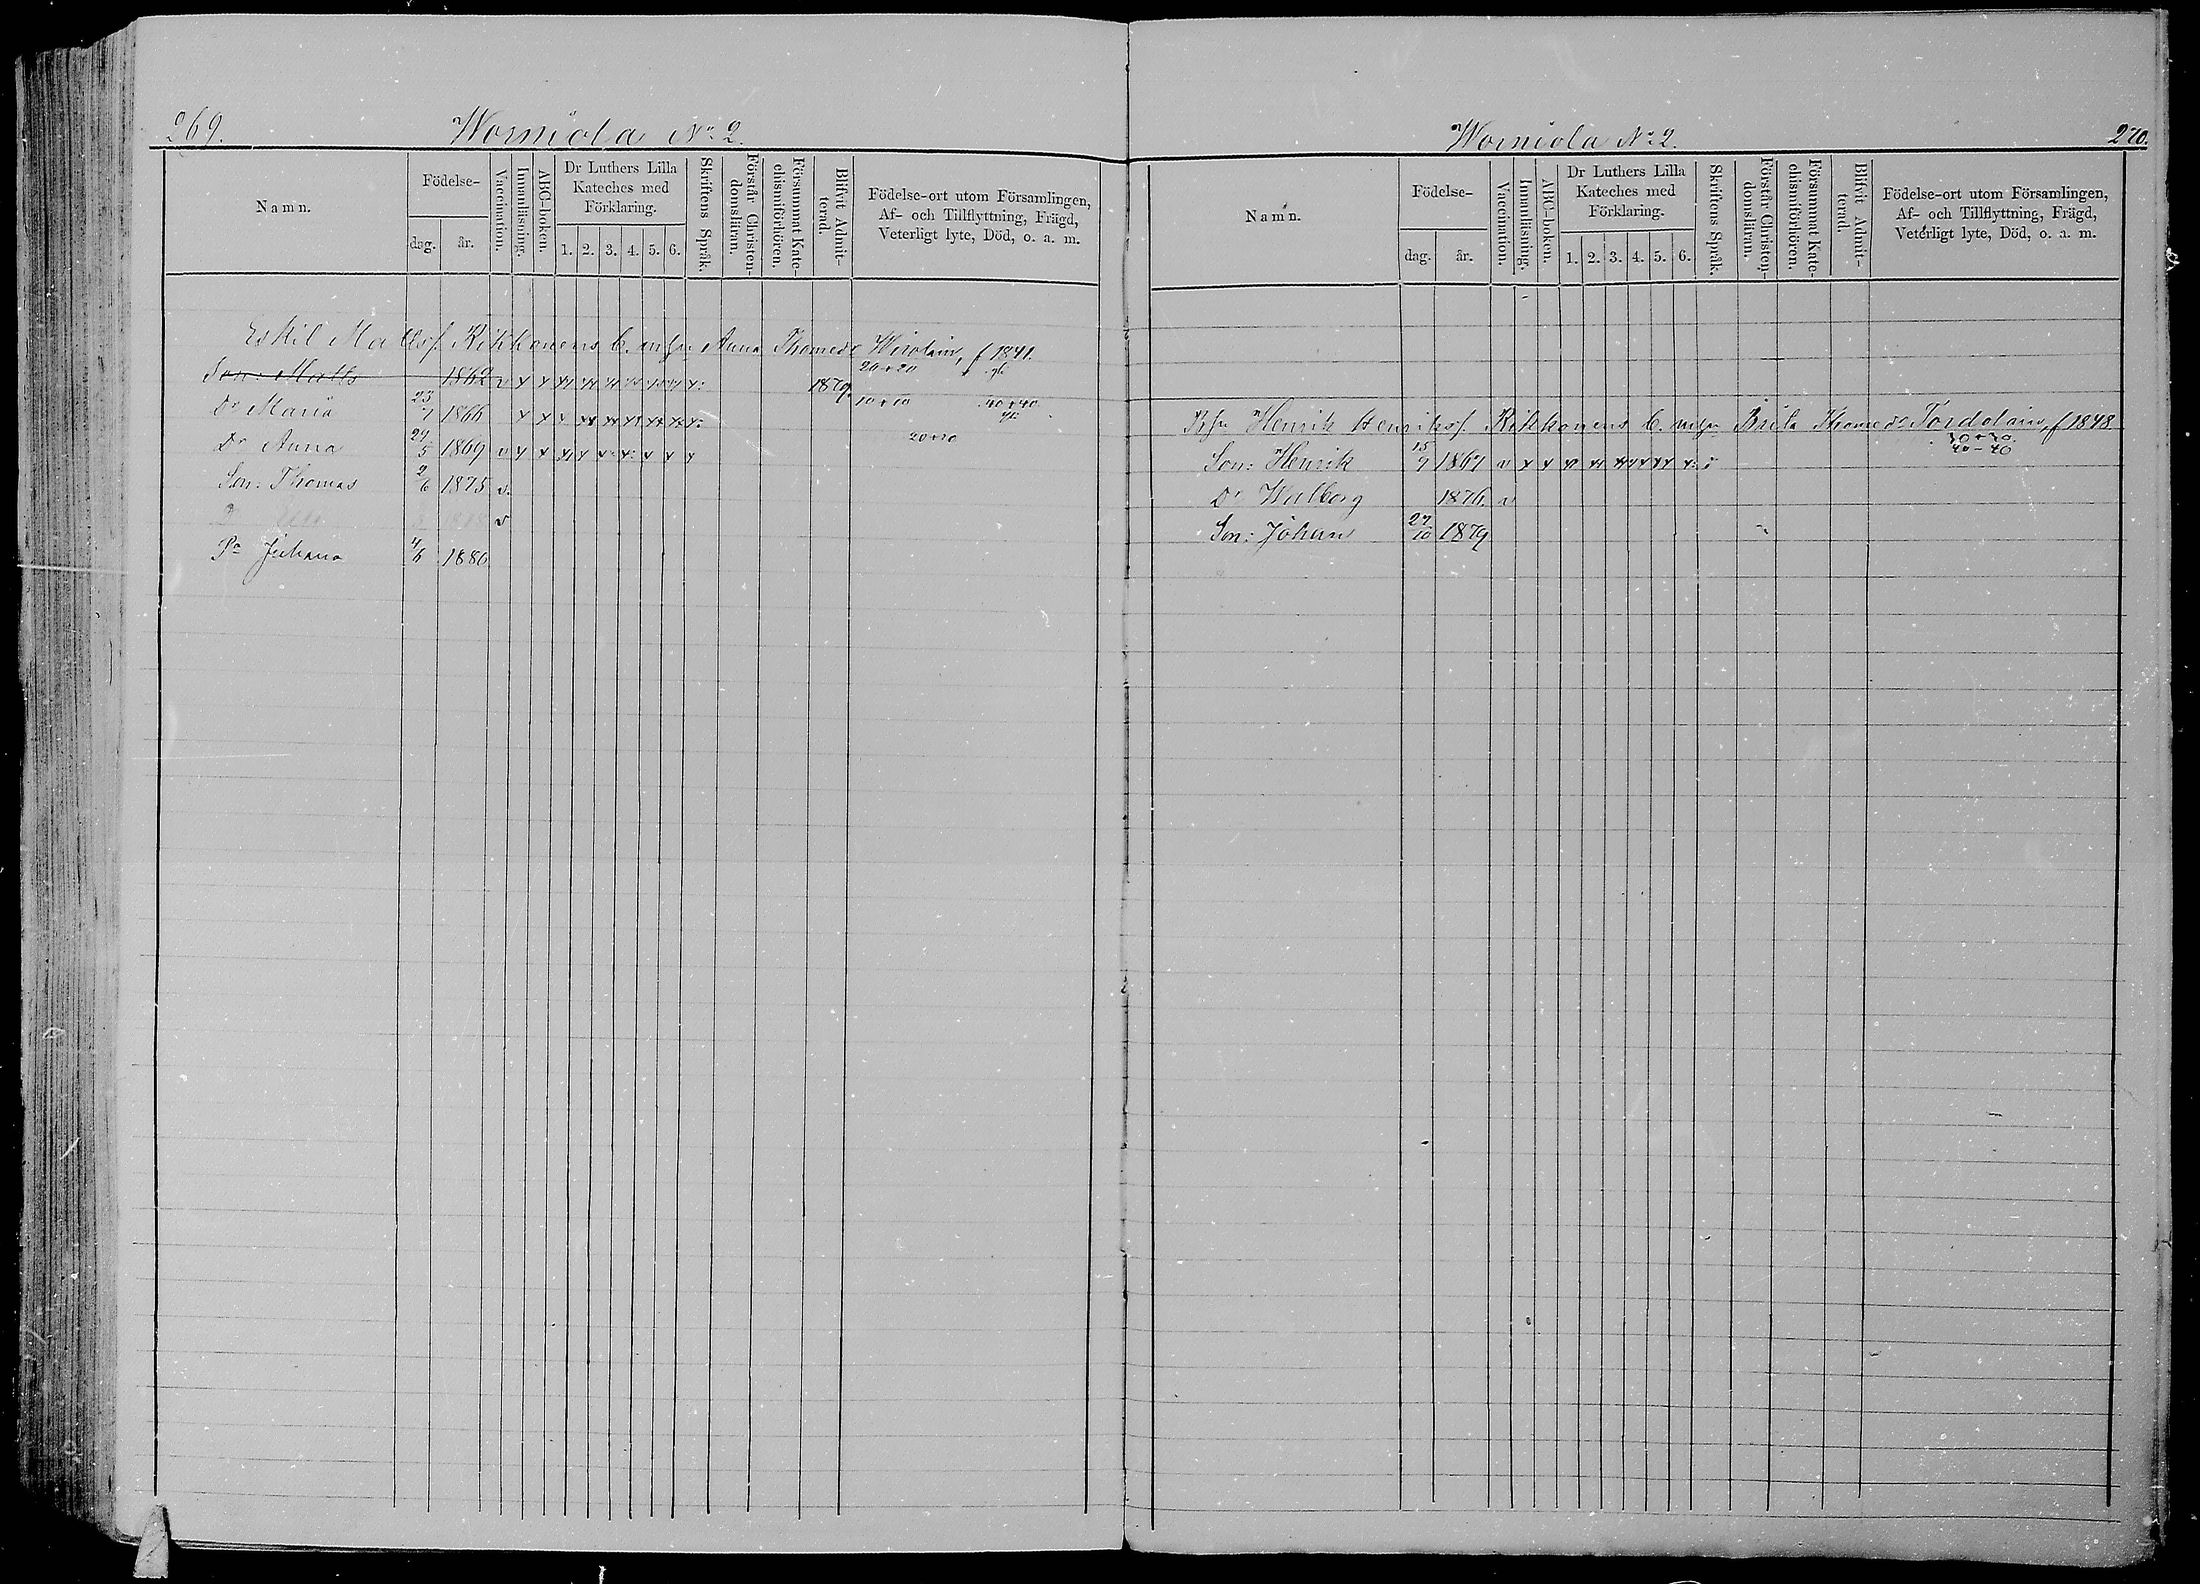 269. Worniola No 2.
Namn.
Födelse-
dag. år.
Vaccination.
Innanläsning.
ABC-boken.
Dr Luthers Lilla Kateches med Förklaring.
1. 2. 3. 4. 5. 6.
Skriftens Språk.
Förstår Christendomsläran.
Försummat Katechismiförhören.
Blifvit Admitterad.
Födelse-ort utom Församlingen,
Af- och Tillflyttning, Frägd,
Veterligt lyte, Död, o. a. m.
Eskil Matts. Rikkonens b. m. hu Anna Thomasd. f 1841.
Son: Matts 1862 v x x 1879
20+20
Dr Maria 23/7 1866 x x
10+10 40+40
Dr Anna 27/5 1869 v x x
20+10
Son: Thomas 2/6 1875 v.
v
Juhana 4/6 1880
Worniola No 2. 270.
Namn.
Födelse-
dag. år.
Vaccination.
Innanläsning.
ABC-boken.
Dr Luthers Lilla Kateches med Förklaring.
1. 2. 3. 4. 5. 6.
Skriftens Språk.
Förstår Christendomsläran.
Försummat Katechismiförhören.
Blifvit Admitterad.
Födelse-ort utom Församlingen,
Af- och Tillflyttning, Frägd,
Veterligt lyte, Död, o. a. m.
Henrik Henriks. Rikkonens b. m. hu Brita Thomasd. Tordolain, f 1848
Son: Henrik 15/9 1867 v x x
40-40
Dr Walborg 1876. v
Son: Johan 27/10 1879